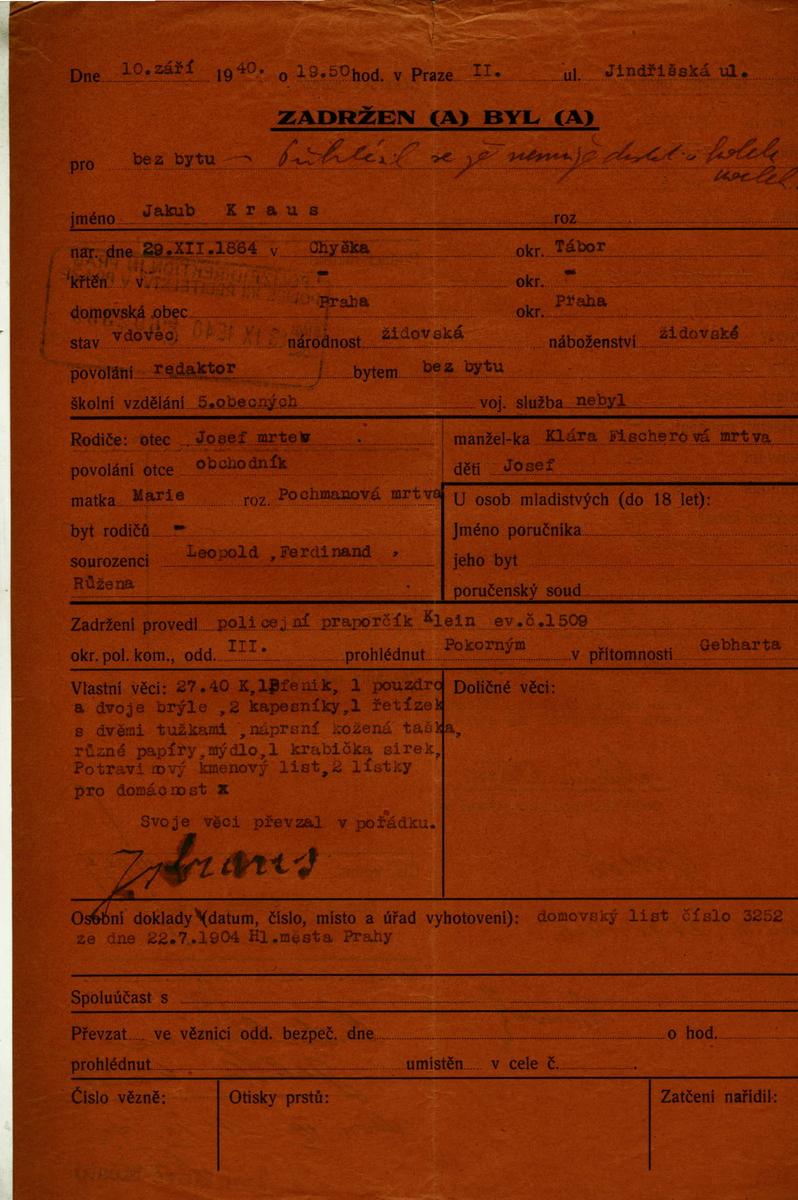 Dne 10.září 1940. o 19.50 hod. v Praze II. ul. Jindřišská ul.
ZADRŽEN (A) BYL (A)
pro bez bytu – se že nemůže
jméno Jakub Kraus roz
nar. dne 29.XII.1864 v Chyška okr. Tábor
křtěn v - okr. -
domovská obec Praha okr. Praha
stav vdovec, národnost židovská náboženství židovské
povolání redaktor bytem bez bytu
školní vzdělání 5.obecných voj. služba nebyl
Rodiče: otec Josef mrtev . manžel-ka Klára Fischerová mrtva
povolání otce obchodník děti Josef
matka Marie roz. Pochmanová mrtva U osob mladistvých (do 18 let):
byt rodičů - Jméno poručníka
sourozenci Leopold ,Ferdinand , jeho byt
Růžena . poručenský soud
Zadržení provedl policejní praporčík Klein ev.č.1509
okr. pol. kom., odd. III. prohlédnut Pokorným v přítomnosti Gebharta
Vlastní věci: 27.40 K,1Pfenik, 1 pouzdro Doličné věci:
a dvoje brýle ,2 kapesníky,1 řetízek
s dvěmi tužkami ,náprsní kožená taška,
různé papíry,mýdlo,1 krabička sirek,
Potravinový kmenový list,2 lístky
pro domácnost x
Svoje věci převzal v pořádku.
J Kraus
Osobní doklady (datum, číslo, místo a úřad vyhotovení): domovský list číslo 3252
ze dne 22.7.1904 Hl.města Prahy
Spoluúčast s
Převzat ve věznici odd. bezpeč. dne o hod.
prohlédnut umístěn v cele č.
Číslo vězně: Otisky prstů: Zatčení nařídil: